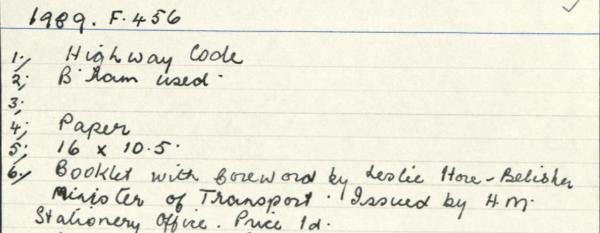 1989. F. 456
1; Highway Code
2; B'ham used.
3;
4; Paper
5; 16 x 10.5.
6; Booklet with foreword by Leslie Hore-Belisha
Minister of Transport. Issued by H.M.
Stationery Office. Price 1d.